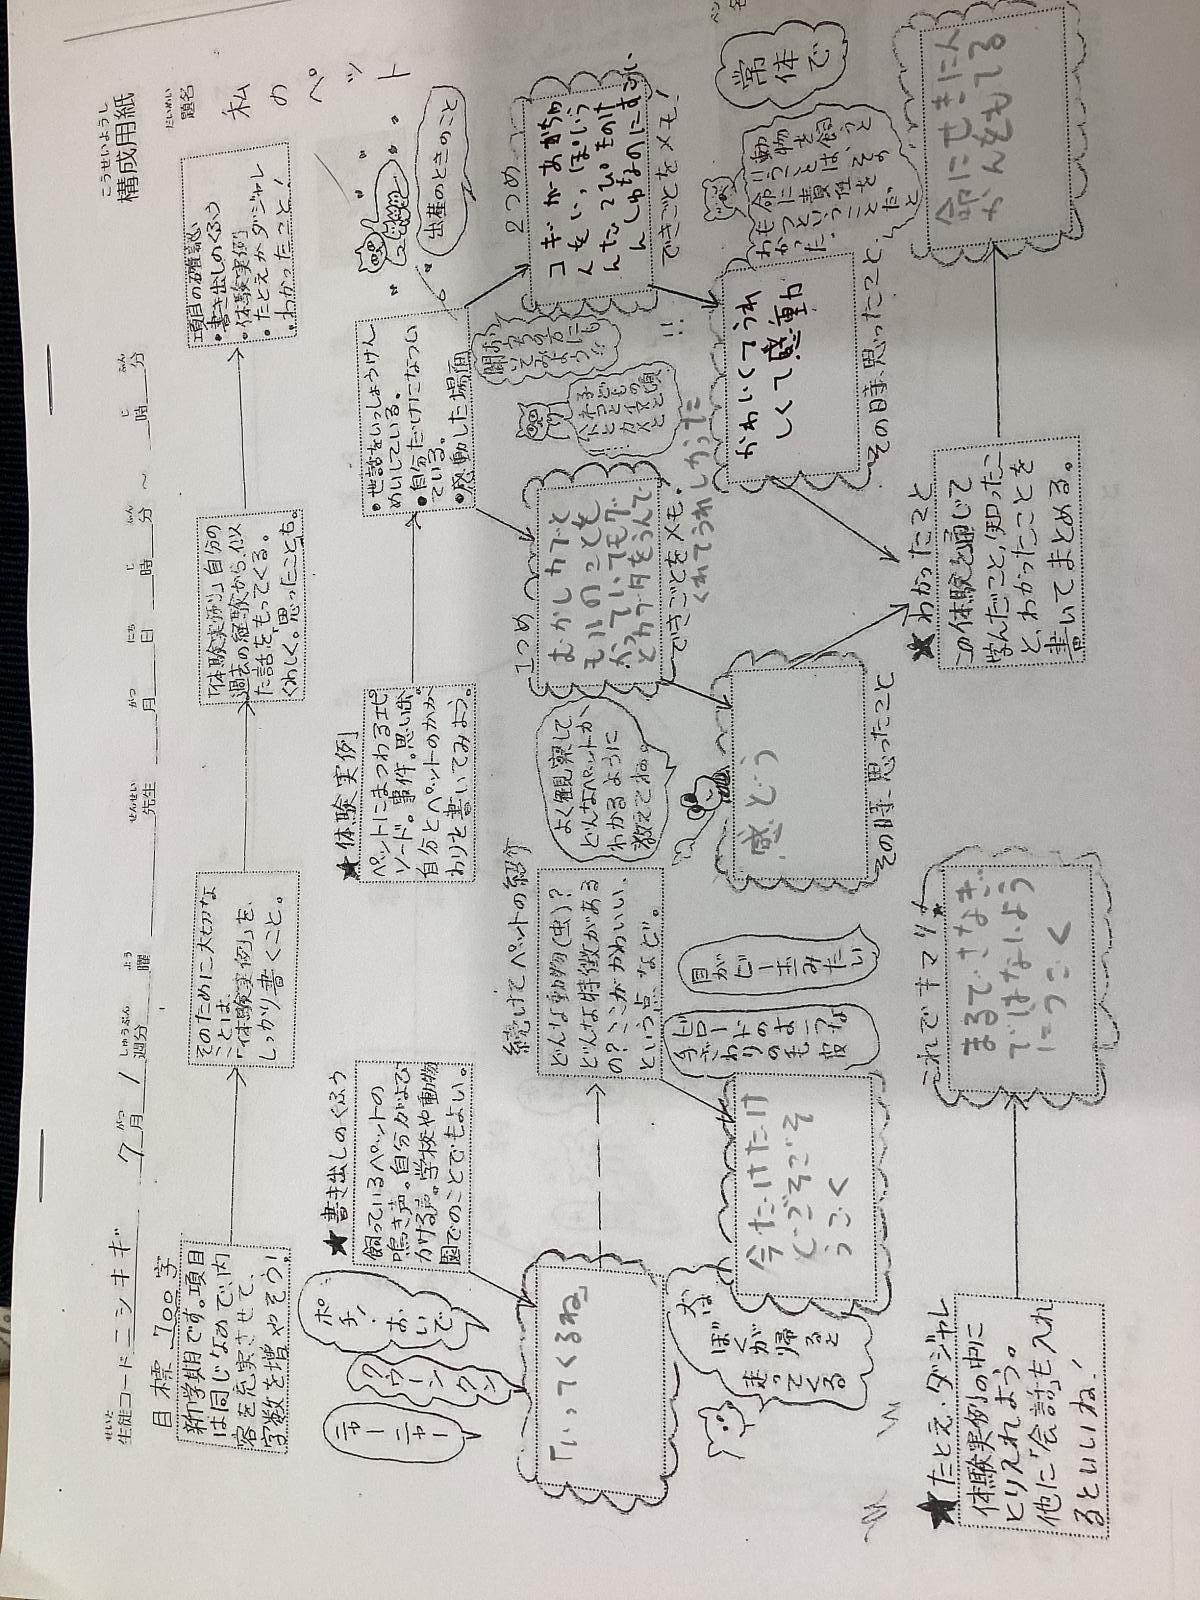 こうせいようし
構成用紙
だいめい
題名
私のペット
せいと
生徒コード ニシキギ 7 月 1 週分 曜 先生 月 日 時 分 ～ 時 分
がつ しゅうぶん よう せんせい がつ にち じ ふん じ ふん
目標 700字
新学期目です。項目
は同じなので、内
容を充実させて、
字数を増やそう！
そのために大切な
ことは、
「体験実例」を、
しっかり書くこと。
「体験実例」自分の
過去の経験から、似
た話をもってくる。
くわしく。思ったことも。
項目の確認
・書き出しのくふう
・体験実例
・たとえかダジャレ
・わかったこと！
★書き出しのくふう
飼っているペットの
鳴き声。自分がよび
かける声。学校や動物
園でのことでもよい。
ポチ！
おいで
クウーン
クン
ニャー
ニャー
「いってくるね」
続けてペットの紹介
どんな動物（虫）？
どんな特徴がある
の？ここがかわいい、
という点など。
よく観察して、
どんなペットか、
わかるように
教えてね。
犬は
ぼくが
帰ると
走ってくる
目が
ビー玉みたい
今たけたけ
どごそごそ
うごく
★体験実例
ペットにまつわるエピ
ソード。事件。思い出。
自分とペットのかか
わりを書いてみよう。
・世話をいっしょうけん
めいしている。
・自分だけになつい
ている。
・感動した場面
出産のときのこと
1つめ
むかしカブと
もいのことを
かっていてモグ
とカブタをうんで
くれてうれしかった
できごとをメモ。
感どう
その時、思ったこと
2つめ
できごとをメモ！
かわいくてうれ
しくて感動
その時、思ったこと、
常体で
★わかったこと
この体験を通じて
学んだこと、知ったこ
と、わかったことを
書いてまとめる。
命にせきにん
かんをもてる
★たとえ・ダジャレ
体験実例の中に
とりいれよう。
他に「会話」も入れ
るといいね、
これでキマリ★
まるでさなぎ
ではないよう
にうごく